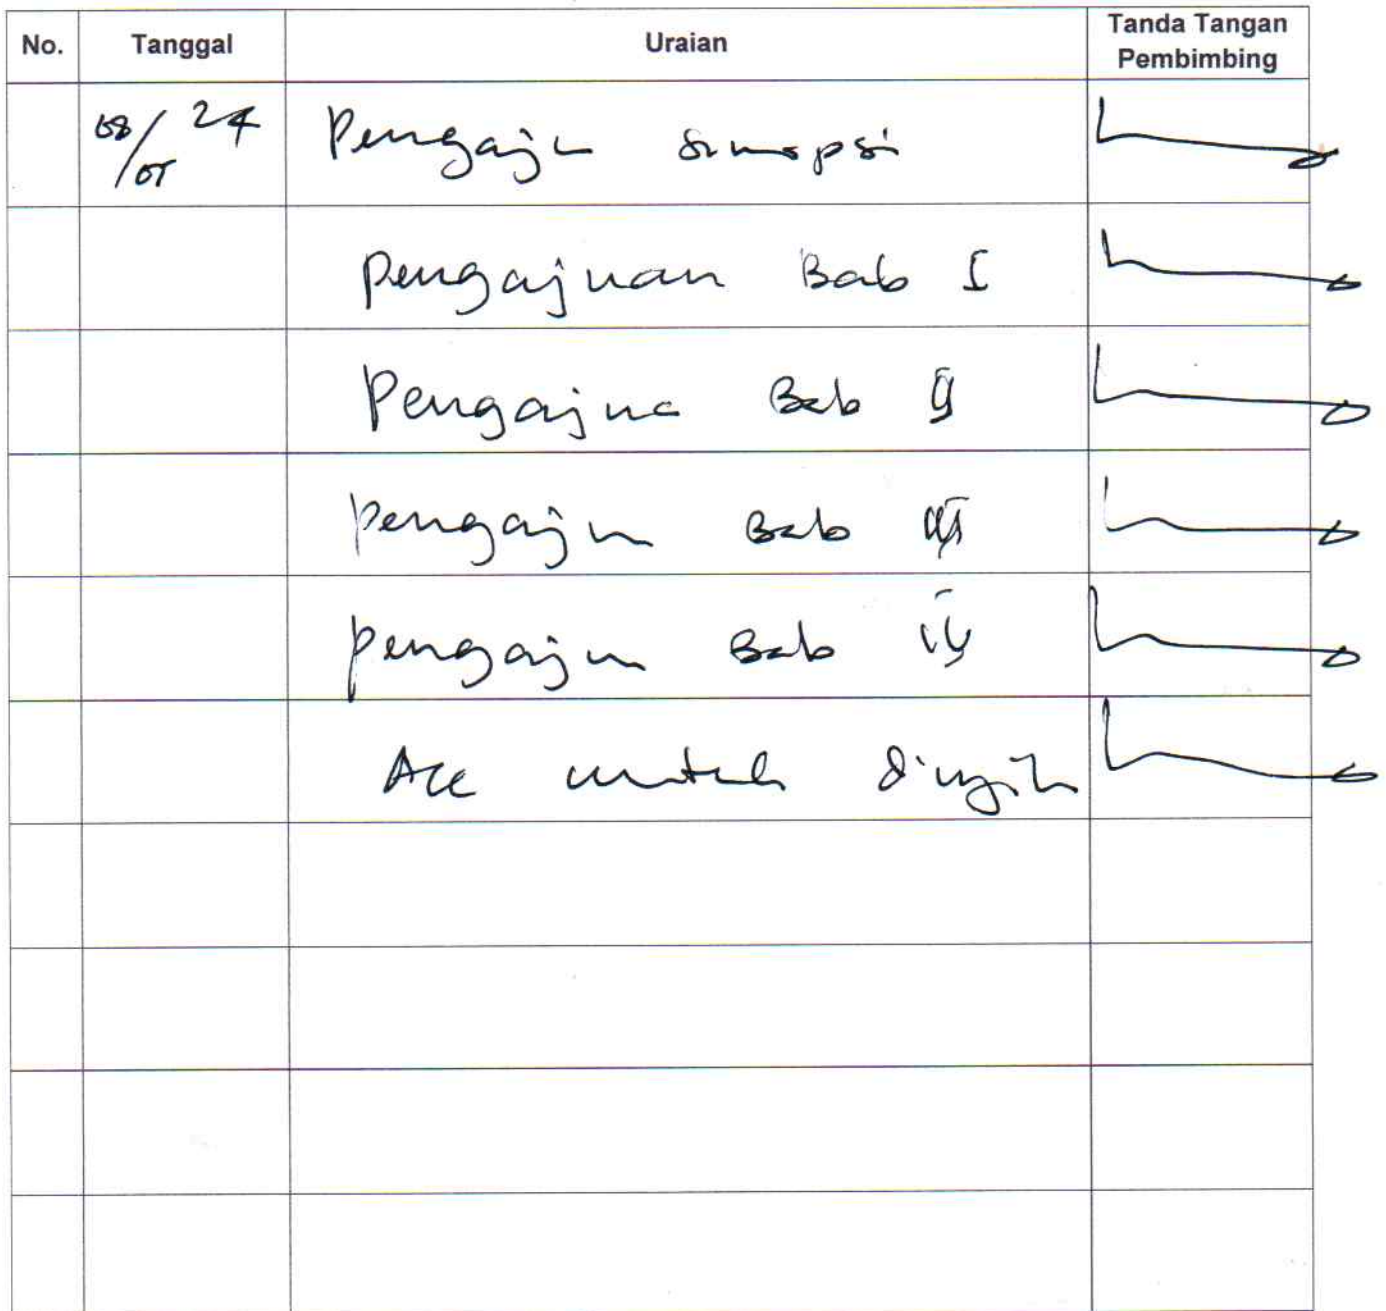 No. Tanggal Uraian Tanda Tangan Pembimbing
08/05 24 Pengajun sinopsi
Pengajuan Bab I
Pengajua Bab II
pengajun Bab III
pengajun Bab IV
Acc untuk diuji